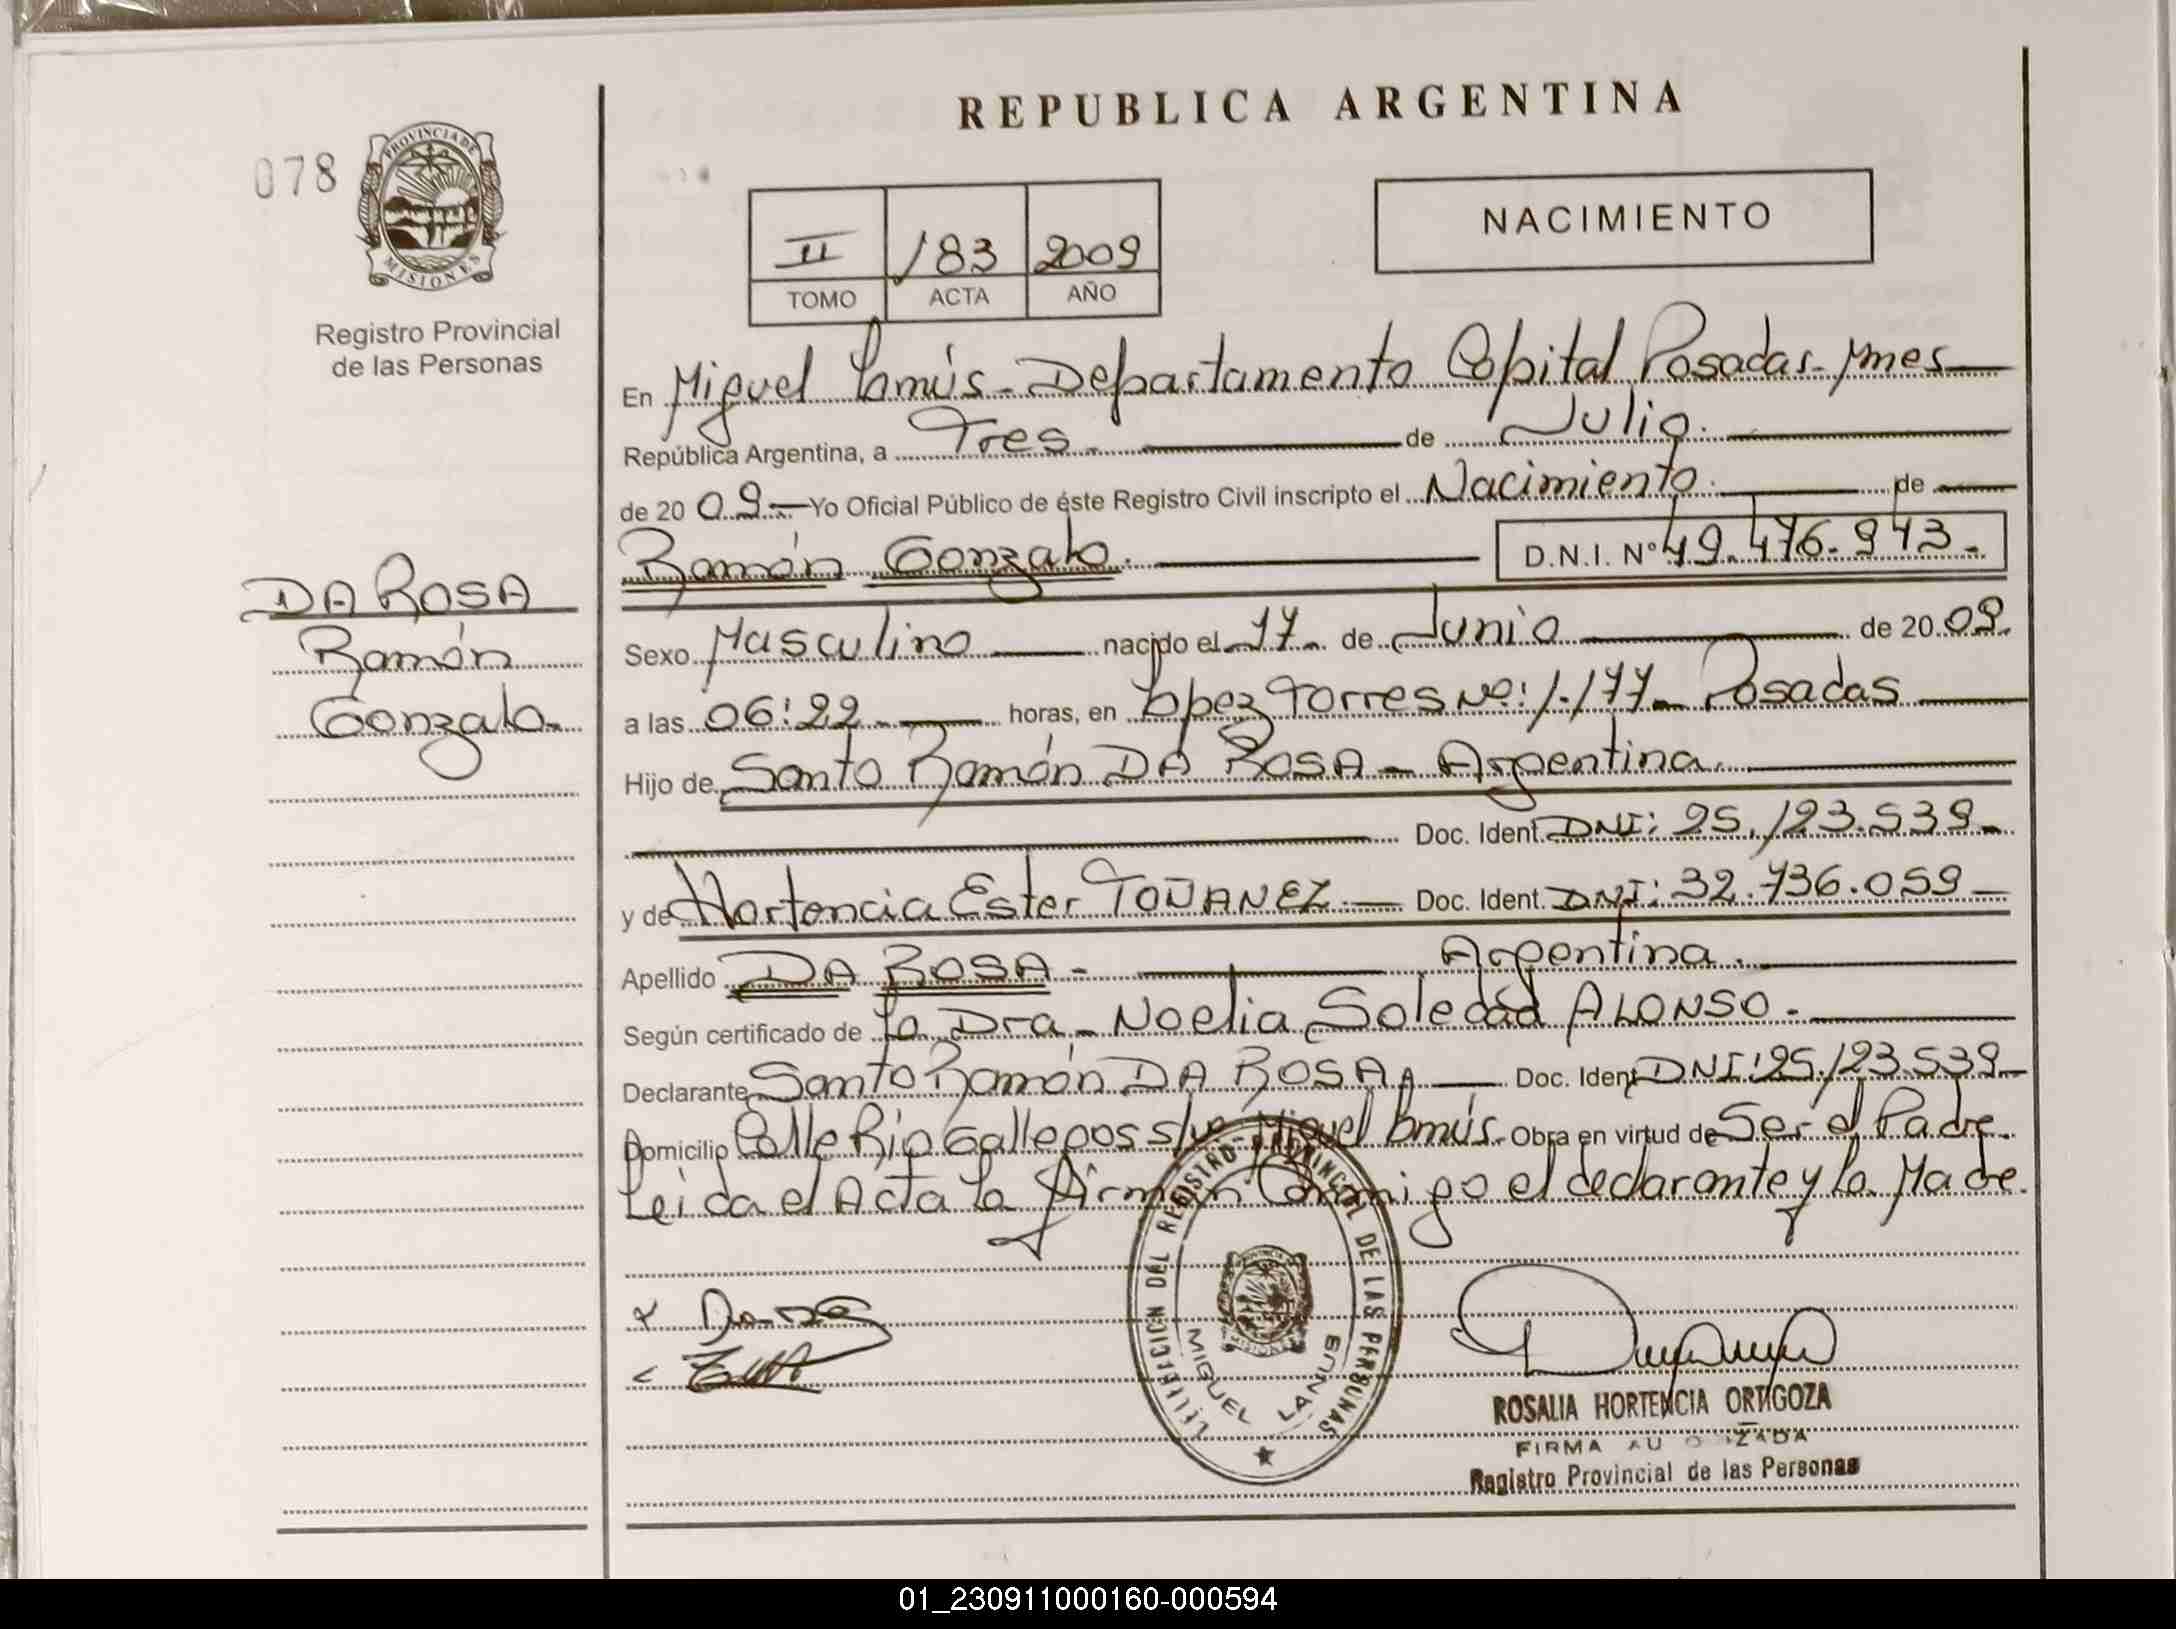 REPUBLICA ARGENTINA
078
PROVINCIA DE
MISIONES
Registro Provincial
de las Personas
II 183 2009
TOMO ACTA AÑO
NACIMIENTO
En Miguel Lanús - Departamento Capital Posadas - Mnes
República Argentina, a Tres de Julio.
de 20 09 Yo Oficial Público de éste Registro Civil inscripto el Nacimiento de
Ramón Gonzalo. D.N.I. Nº 49.476.943.
DA ROSA
Ramón
Gonzalo
Sexo Masculino nacido el 17 de Junio de 20 09.
a las 06:22 horas, en López Torres Nº: 1.177 - Posadas
Hijo de Santo Ramón DA ROSA - Argentina.
Doc. Ident. DNI: 25.123.539
y de Hortencia Ester TOÑANEZ Doc. Ident. DNI: 32.736.059
Apellido DA ROSA - Argentina.
Según certificado de la Dra - Noelia Soledad ALONSO.
Declarante Santo Ramón DA ROSA Doc. Ident DNI: 25.123.539
Domicilio Calle Río Gallegos s/nº - Miguel Lanús - Obra en virtud de Ser el Padre.
Leída el Acta la firman Conmigo el declarante y la Madre.
DEL REGISTRO PROVINCIAL DE LAS PERSONAS
PROVINCIA
MISIONES
MIGUEL LANUS
ROSALIA HORTENCIA ORTIGOZA
FIRMA AU O IZADA
Registro Provincial de las Personas
01_230911000160-000594